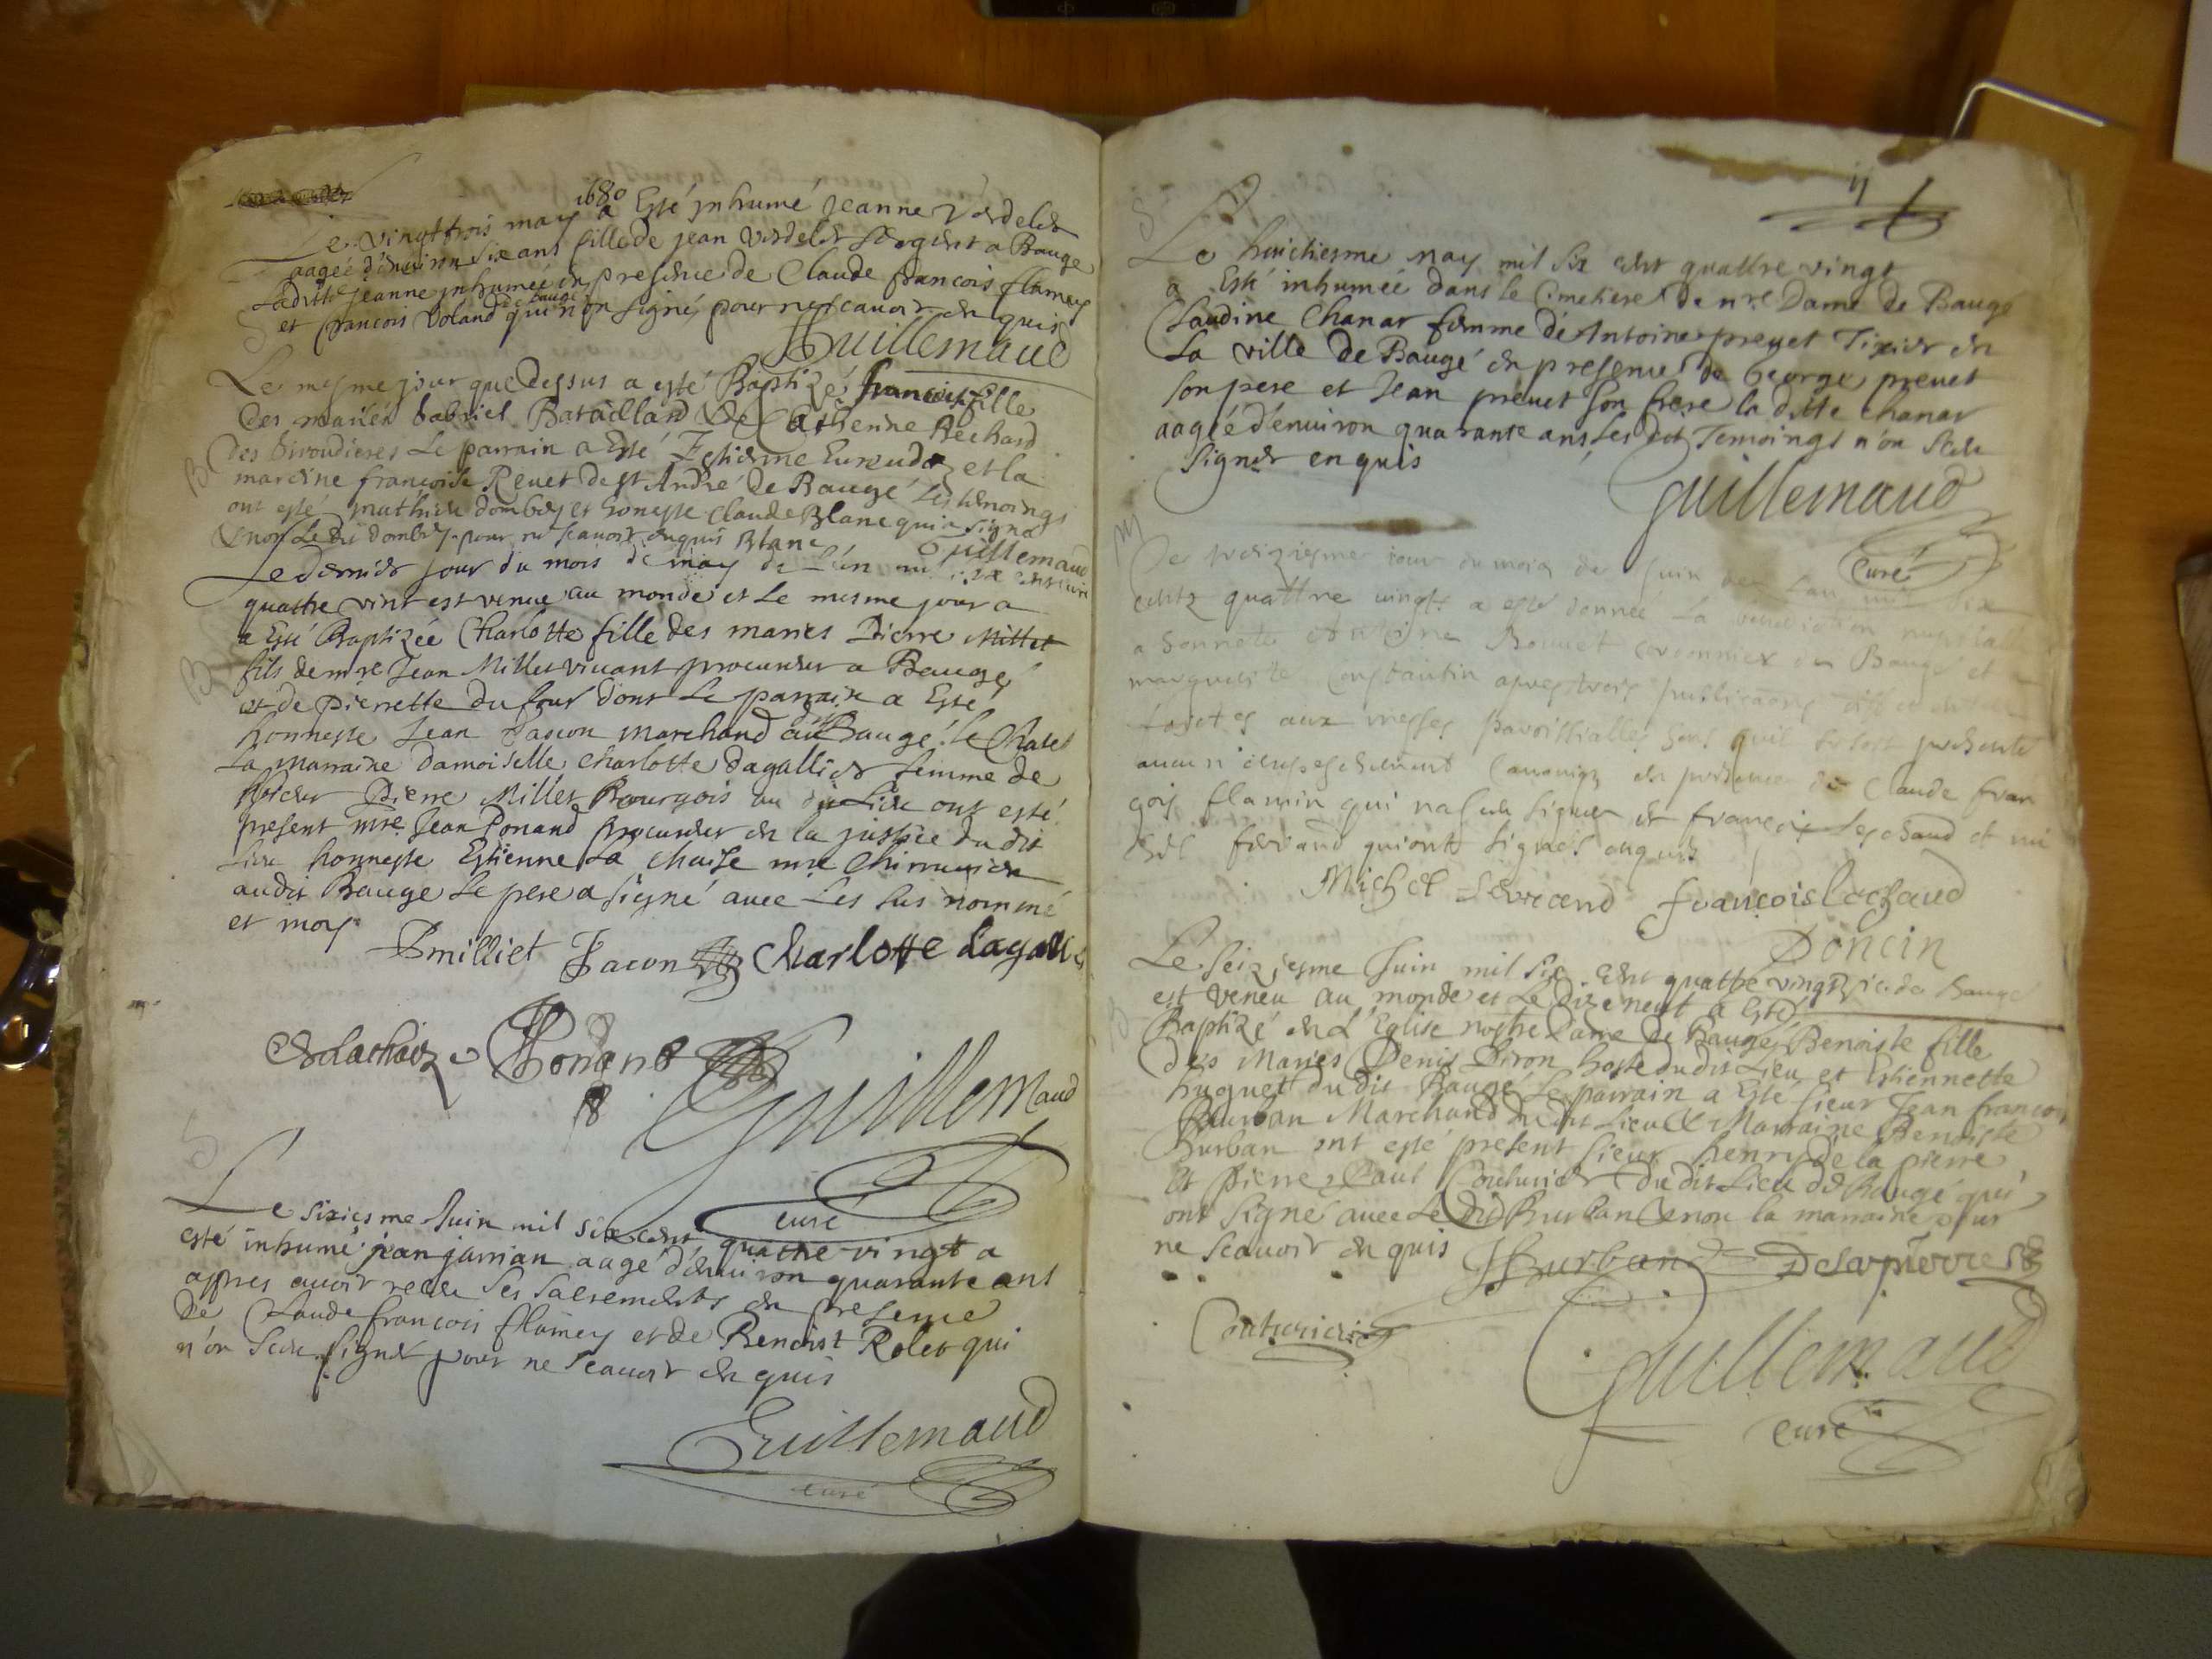 1680
Le vingttrois may a Esté inhumé Jeanne Verdelet
aagée d'environ six ans fille de jean verdelet sergent a Bauge
Ladite jeanne inhumée en presence de Claude francois flamey
et francois Voland de Bauge qui n'on signé pour ne scavoir en quis
Guillemaud
S
Le mesme jour que dessus a esté Baptizé francoise fille
des mariés Gabriel Bataillard & de Estienne Rechard
des Le parrain a Esté Estienne et la
B
mareine francoise Revet de St André de Baugé Les temoings
ont esté mathieu dombey et honeste Claude Blanc qui a signé
& non Le dit dombey pour ne scavoir enquis Blanc Guillemaud
curé
Le dernier jour du mois de may de l'an mil six cent
quattre vint est venue au monde et Le mesme jour a
a Esté Baptizée Charlotte fille des mariés Pierre Millet
B
fils de mre Jean Millet vivant procureur a Bauge
et de pierrette du four dont Le parrain a Esté
honneste Jean Jacon marchand du dit Baugé. le Chatel
La marraine damoiselle Charlotte dagallier femme de
sieur Pierre Millet Bourgois au dit Lieu ont esté
present mre Jean Ponard procureur en la justice du dit
Lieu honneste Estienne La Chaise mre Chirurgien
au dit Bauge Le pere a signé avec Les sus nommé
et moy
Pmilliet Jacon Charlotte dagallie
Edelachaize Ponard
Guillemaud
curé
S
Le sixiesme Juin mil six cent quattre vingt a
esté inhumé jean jarrian aagé d'environ quarante ans
apres avoir receu ses sacrements en presence
de Claude francois flamey et de Benoist Rolet qui
n'on sceu signer pour ne scavoir en quis
Guillemaud
curé
S
Le huictiesme may mil six cent quattre vingt
a Esté inhumée dans le Cimetiere de nre Dame de Bauge
Claudine Chanar femme de Antoine prevet Tixier en
La ville de Baugé en presence de George prevet
son pere et Jean prevet son frere la ditte Chanar
aagée d'environ quarante ans, Les dits Temoings n'on sceu
signer enquis
Guillemaud
curé
M
Le treizieme jour du mois de Juin de L'an mil six
centz quattre vingt a esté donnée La benediction nuptialle
a honnete Antoine Bonnet cordonnier de Baugé et a
marguerite Constantin apres trois publications
faictes aux messes paroissialles sans quil se soit presenté
aucun empeschement Canonique en presence de Claude fran
çois flamin qui na sceu signer et françois Lechaud et mi
chel fevrand qui ont signés enquis
Michel fevrend francois Lechaud
Doncin
vic. de Baugé
Le seiziesme Juin mil six cent quattre vingt
est veneu au monde et Le dizeneuf a Esté
B
Baptizé en L'Eglise nostre Dame de Baugé Benoiste fille
des Mariés Denis Piron hoste du dit Lieu et Estiennette
huguet du dit Baugé Le parrain a Esté sieur Jean francois
Burban Marchand du dit Lieu & Marraine Benoiste
Burban ont esté present sieur henry de la pierre
et pierre Paul Couturier du dit Lieu de Baugé qui
ont signé avec Le dit Burban & non la marraine pour
ne scavoir en quis JfBurban Delapierre
Couturier
Guillemaud
curé